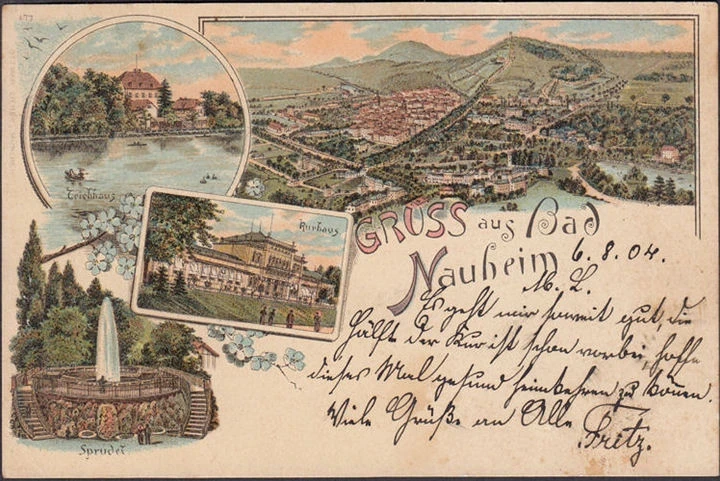 Teichhaus
Kurhaus
Sprudel
GRUSS aus Bad
Nauheim
6.8.04.
M. L.
Es geht mir soweit gut, die
Hälfte der Kur ist schon vorbei, hoffe
dieses Mal gesund heimkehren zu können.
Viele Grüße an Alle
Fritz.